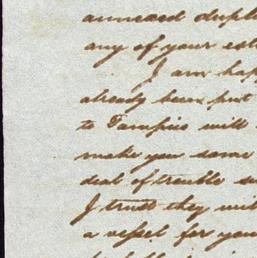 annexed dupli
any of your est
I am hap
already been put
to Tampico will
make you some
deal of trouble su
I trust they wil
a vessel for you